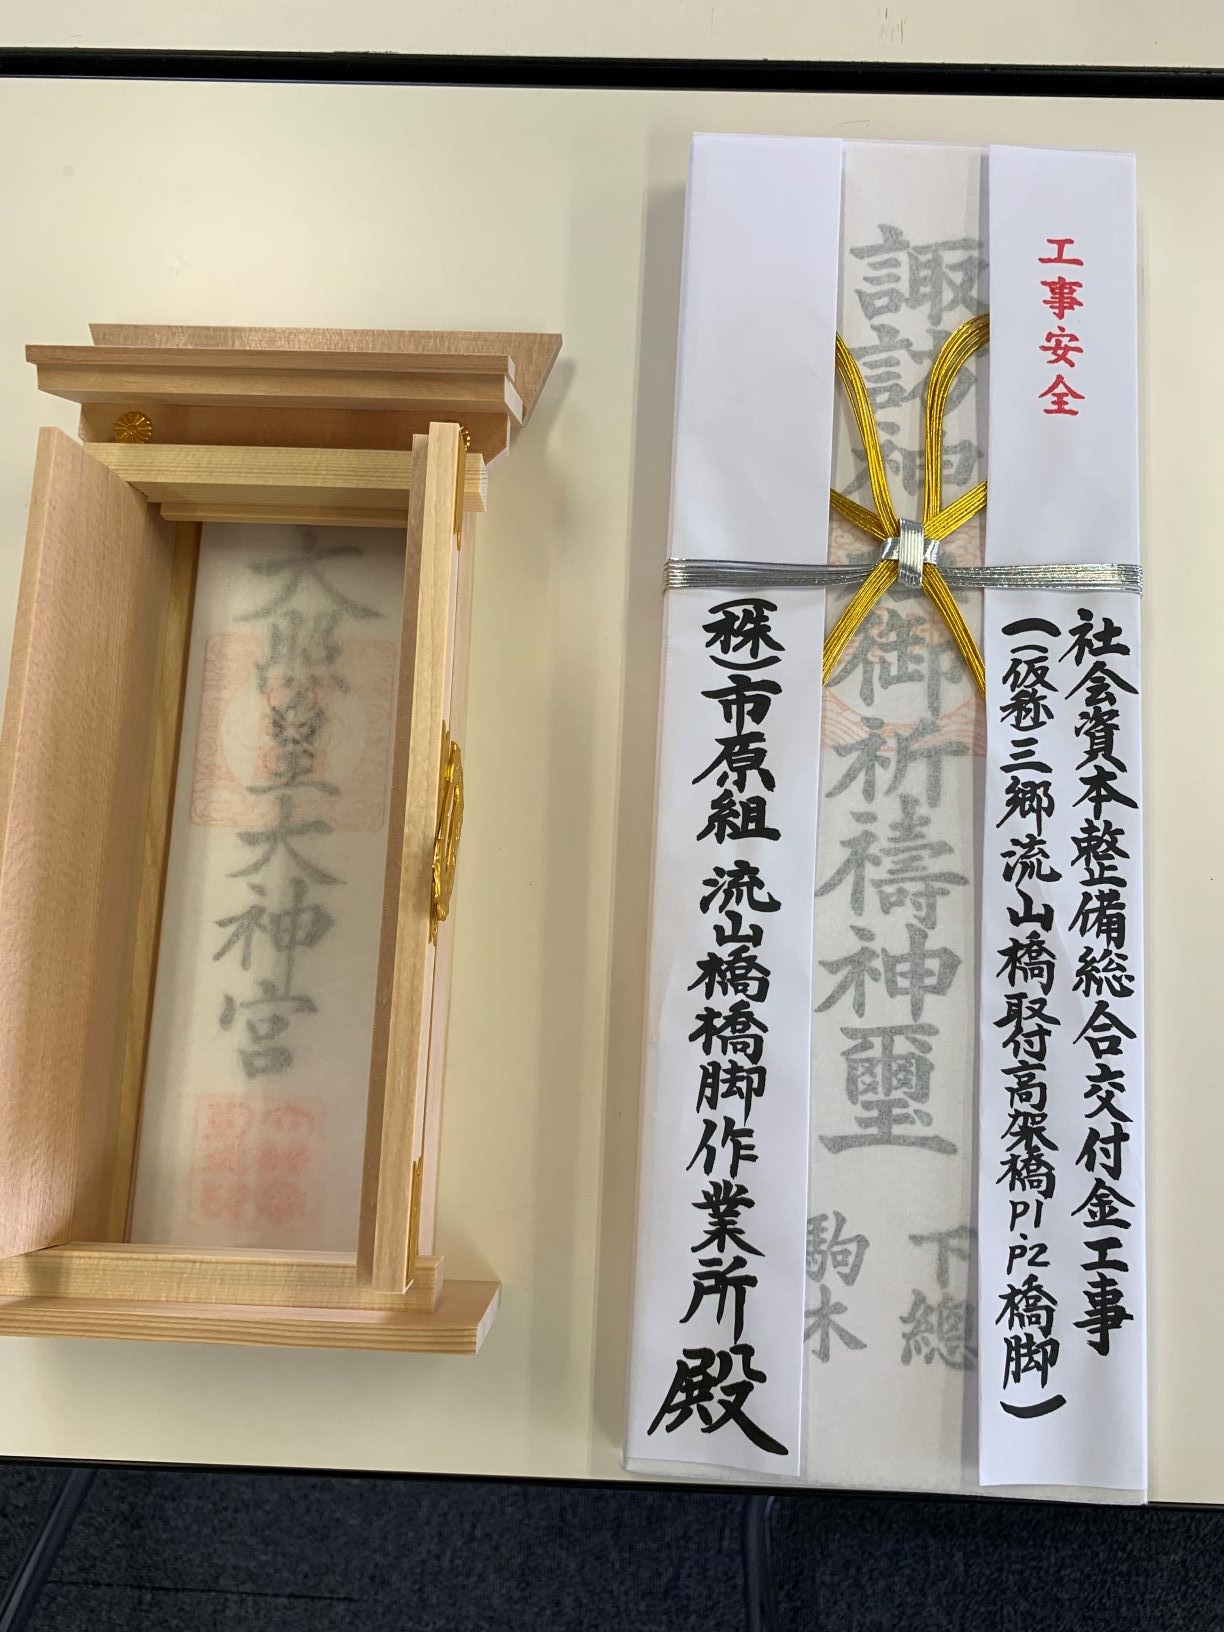 工事安全
社会資本整備総合交付金工事
(（仮称三郷流山橋取付高架橋P1 P2橋脚)
諏訪神社御祈祷神璽
下總
駒木
(株)市原組 流山橋橋脚作業所 殿
天照皇大神宮